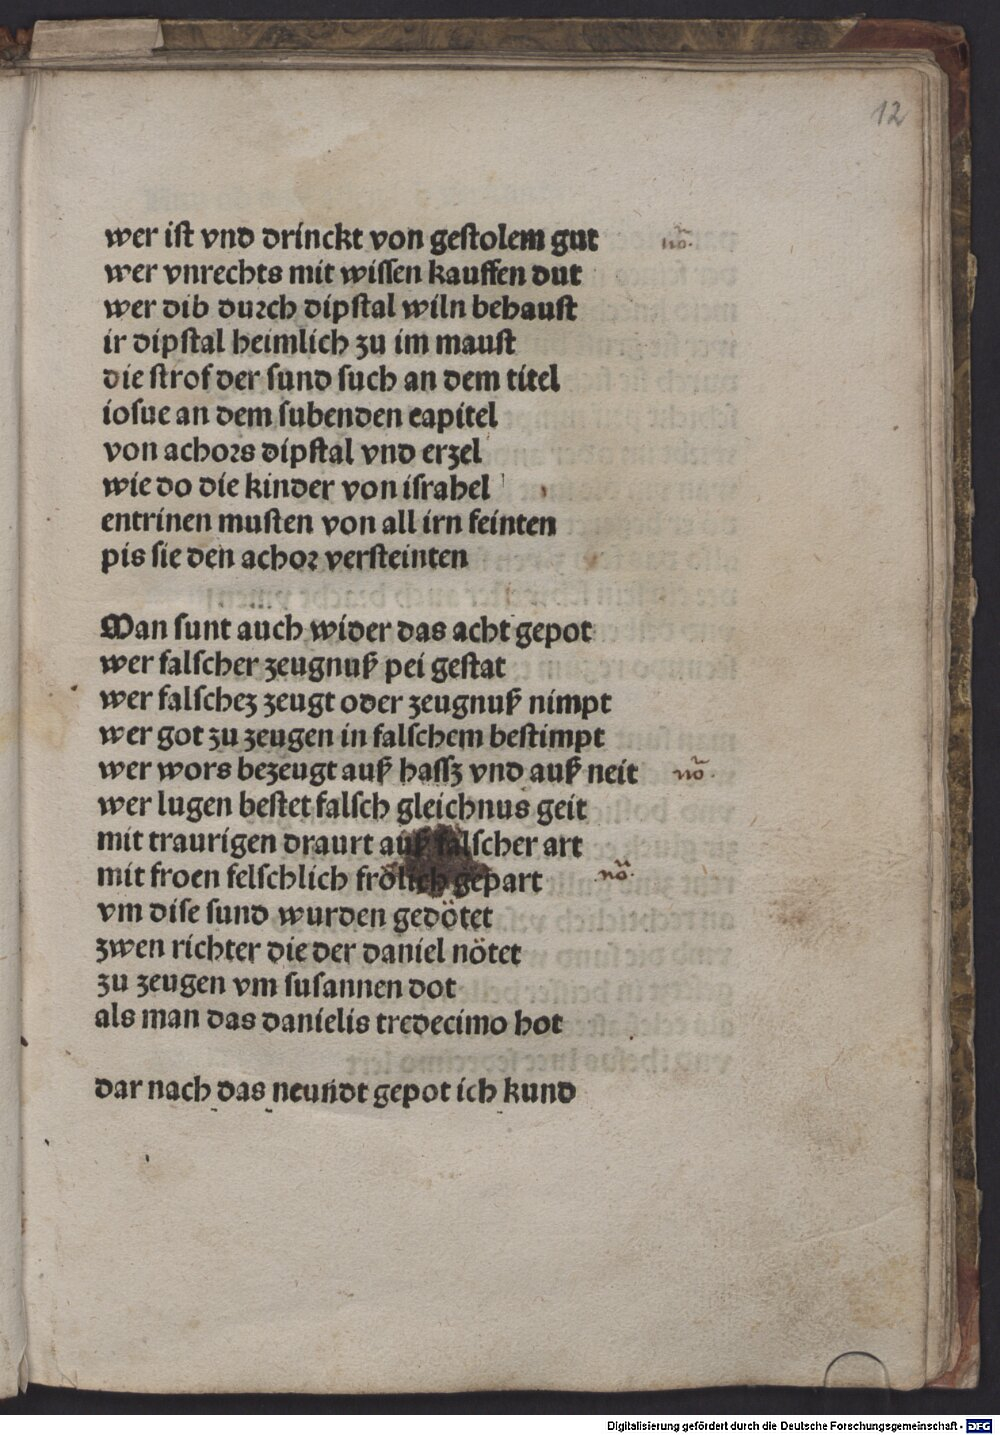 12
wer iſt vnd drinckt von geſtolem gut nō.
wer vnrechts mit wiſſen kauffen dut
wer dib durch dipſtal wiln behauſt
ir dipſtal heimlich zu im mauſt
die ſtrof der ſund ſuch an dem titel
ioſue an dem ſubenden capitel
von achors dipſtal vnd erzel
wie do die kinder von iſrahel
entrinen muſten von all irn feinten
pis ſie den achor verſteinten
Man ſunt auch wider das acht gepot
wer falſcher zeugnuß pei geſtat
wer falſchez zeugt oder zeugnuß nimpt
wer got zu zeugen in falſchem beſtimpt
wer wors bezeugt auß haſſz vnd auß neit nō.
wer lugen beſtet falſch gleichnus geit
mit traurigen draurt auß falſcher art
mit froen felſchlich frölich gepart nō.
vm diſe ſund wurden gedötet
zwen richter die der daniel nötet
zu zeugen vm ſuſannen dot
als man das danielis tredecimo hot
dar nach das neundt gepot ich kund
Digitalisierung gefördert durch die Deutsche Forschungsgemeinschaft - DFG